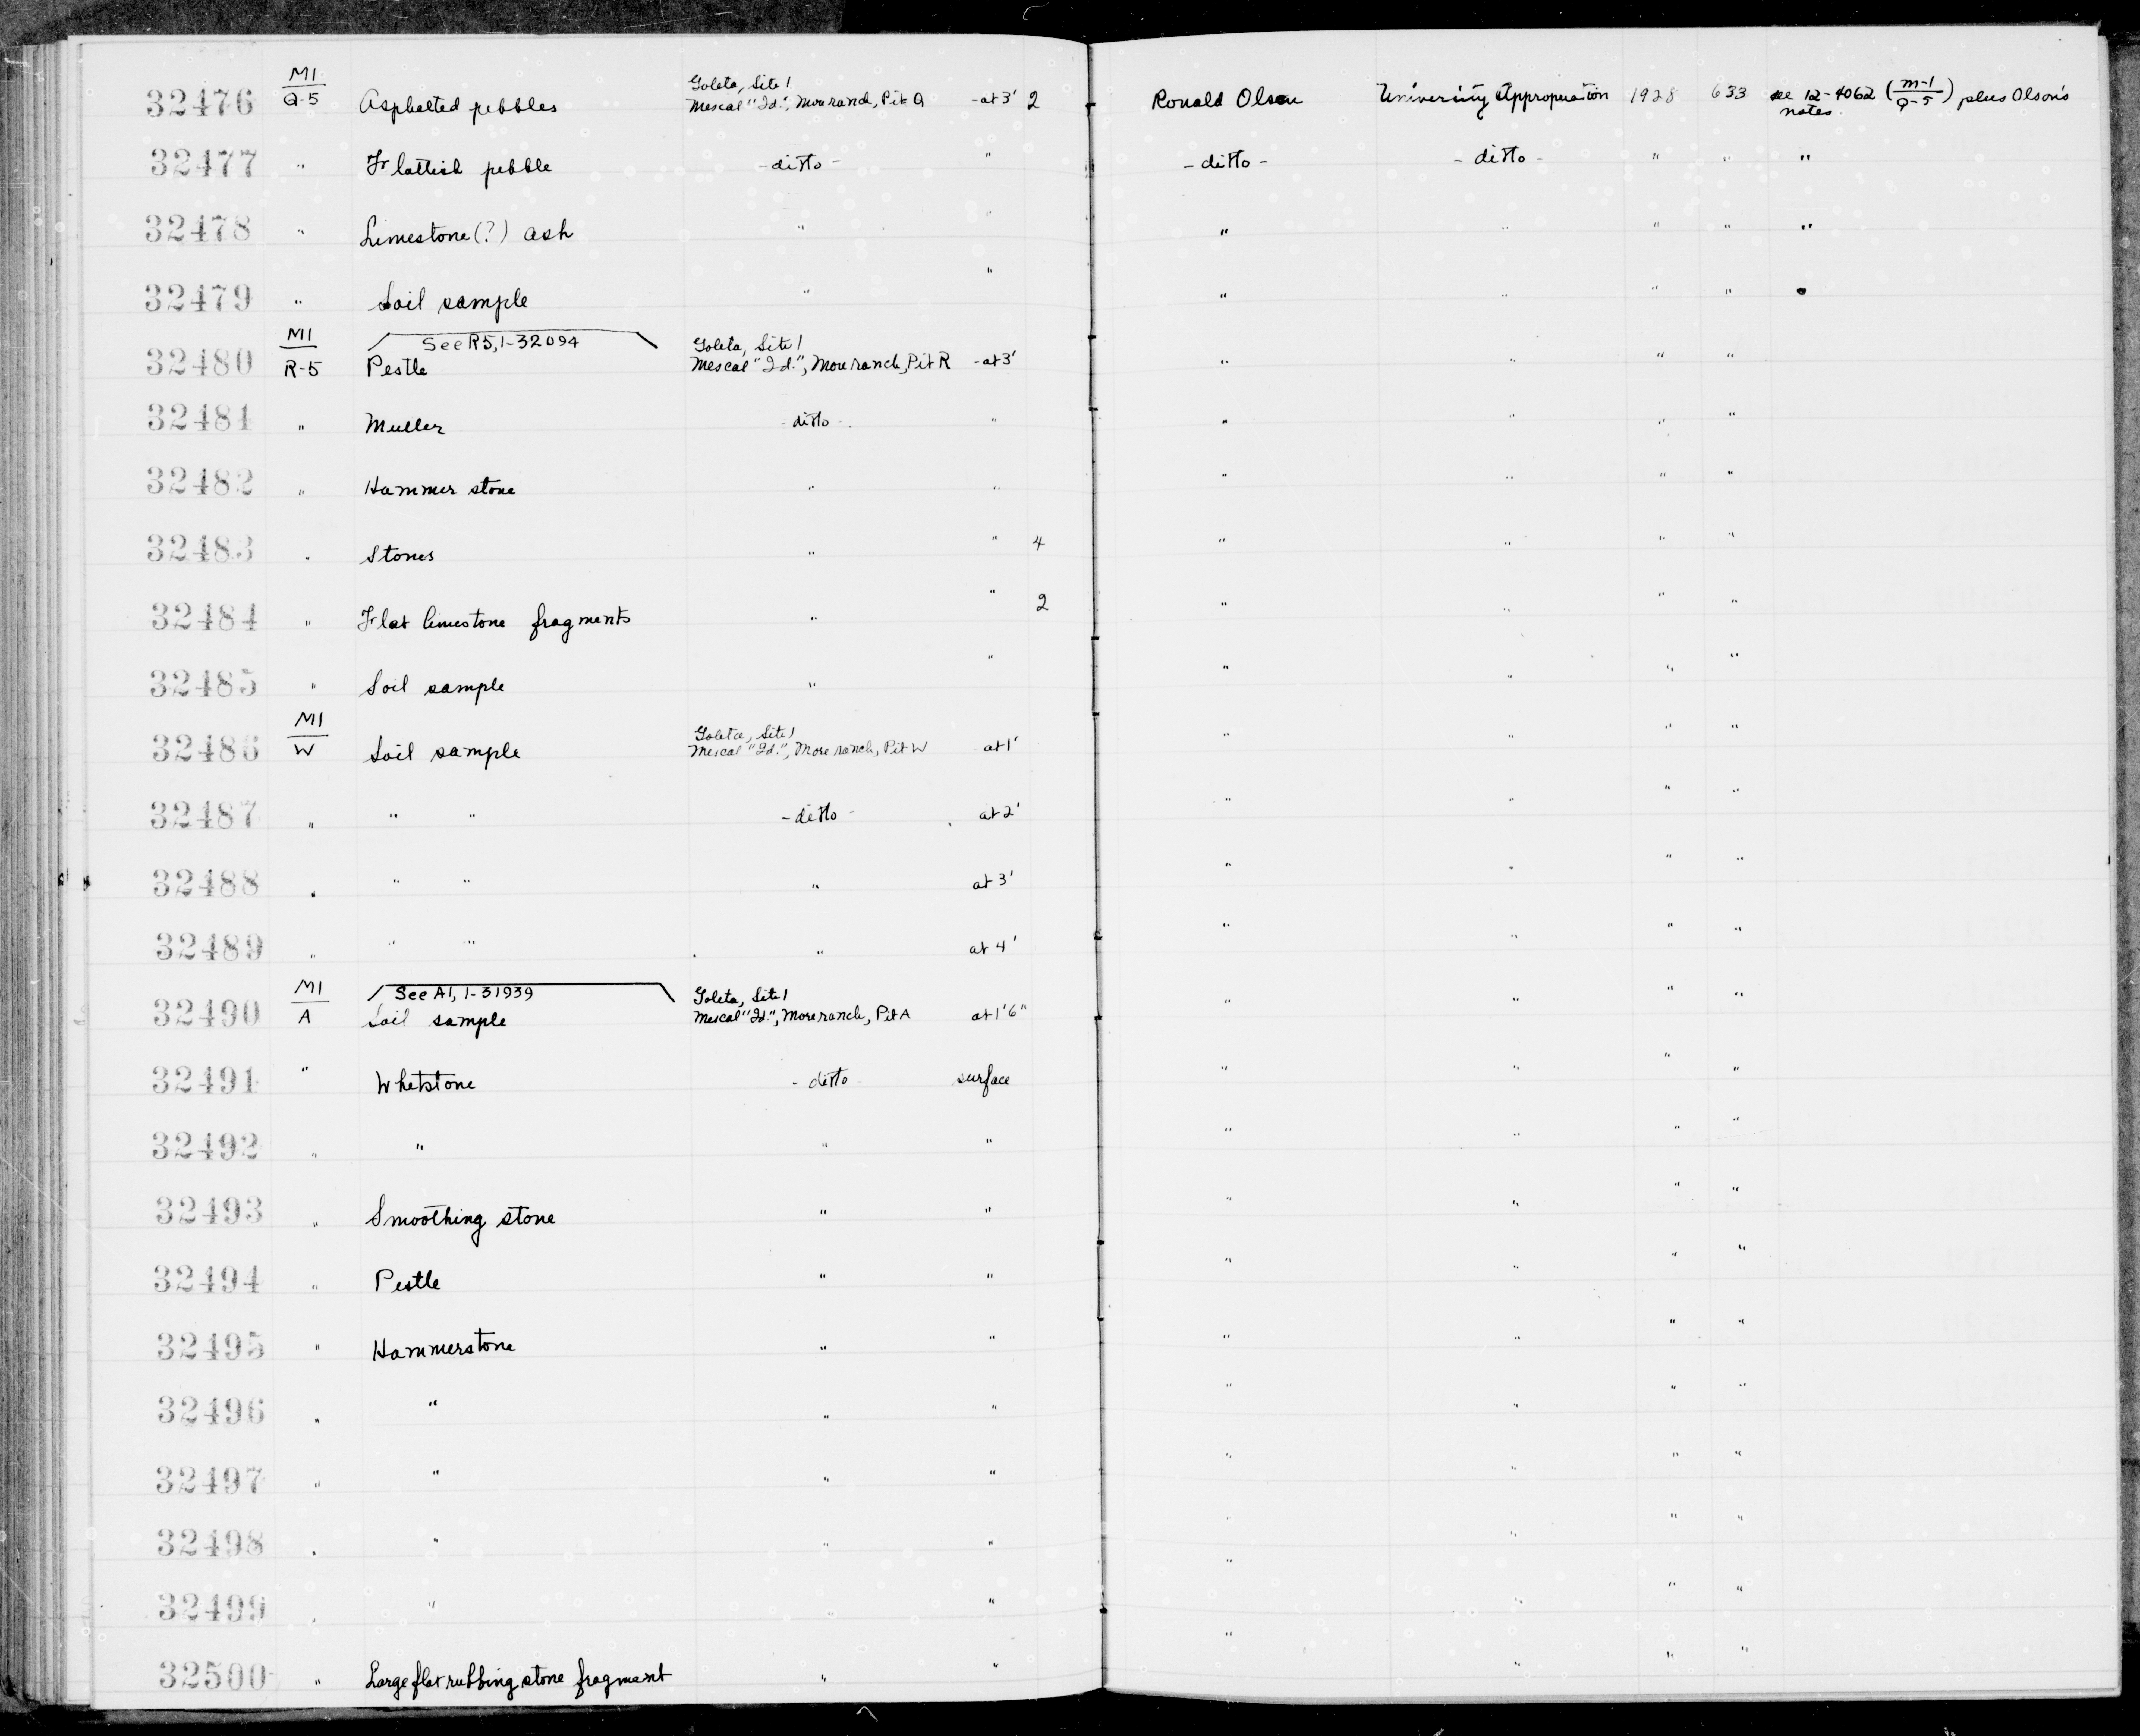 32476 M1/Q-5 Asphalted pebbles Goleta, Site 1 Mescal "Id.", More ranch, Pit Q - at 3' 2 Ronald Olson University Appropriation 1928 633 see 12-4062 (M-1/Q-5) plus Olson's notes.
32477 " Flattish pebble - ditto - " - ditto - - ditto - " " "
32478 " Limestone(?) ash " " " " " " "
32479 " Soil sample " " " " " " "
32480 M1/R-5 See R5, 1-32094 Pestle Goleta, Site 1 Mescal "Id.", More ranch, Pit R - at 3' " " " "
32481 " Muller - ditto - " " " " "
32482 " Hammer stone " " " " " "
32483 " Stones " " 4 " " " "
32484 " Flat limestone fragments " " 2 " " " "
32485 " Soil sample " " " " " "
32486 M1/W Soil sample Goleta, Site 1 Mescal "Id.", More ranch, Pit W at 1' " " " "
32487 " " " - ditto - at 2' " " " "
32488 " " " " at 3' " " " "
32489 " " " " at 4' " " " "
32490 M1/A See A1, 1-31939 Soil sample Goleta, Site 1 Mescal "Id.", More ranch, Pit A at 1'6" " " " "
32491 " Whetstone - ditto surface " " " "
32492 " " " " " " " "
32493 " Smoothing stone " " " " " "
32494 " Pestle " " " " " "
32495 " Hammerstone " " " " " "
32496 " " " " " " " "
32497 " " " " " " " "
32498 " " " " " " " "
32499 " " " " " " " "
32500 " Large flat rubbing stone fragment " " " " " "